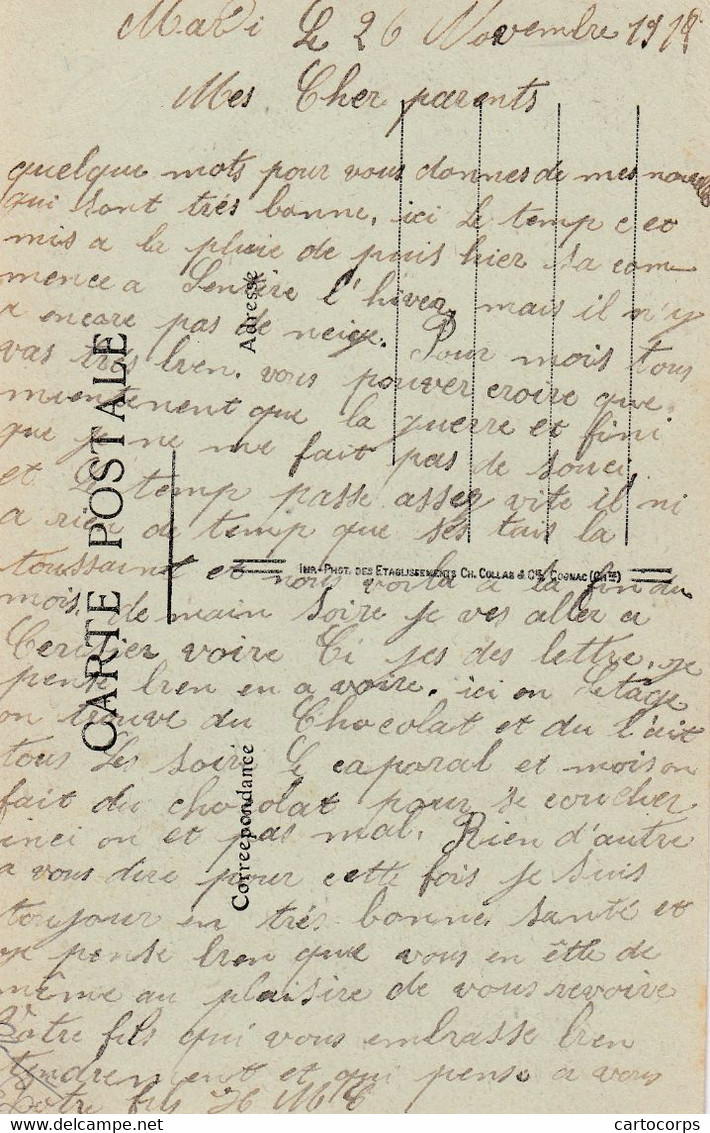 Mardi Le 26 Novembre 1918
Mes Cher parents
quelque mots pour vous donnes de mes nouvelles
qui sont très bonne, ici Le temp c et
mis a la pluie de puis hier sa com
mence a Sentire l'hiver, mais il n'y
a encore pas de neige. Pour mois tous
vas très bien. vous pouver croire que
mientenent que la guerre et fini
que je ne me fait pas de souci
et Le temp passe asser vite il ni
a rien de temp que ses tais la
toussaint et nous voila a la fin du
mois. de main soire je ves aller a
voire Ci jes des lettre, je
pense bien en a voire. ici on Letage
on trouve du Chocolat et du l'ait
tous Les soire Le caporal et mois on
fait du chocolat pour se coucher
inci on et pas mal. Rien d'autre
a vous dire pour cette fois je suis
toujour en très bonne santé et
je pense bien que vous en ête de
même au plaisire de vous revoire
Votre fils qui vous embrasse bien
tendrement et qui pense a vous
Votre fils
CARTE POSTALE
Correspondance
Adresse
IMP.-PHOT. DES ETABLISSEMENTS CH. COLLAS & Cie, COGNAC (CHte)
cartocorps